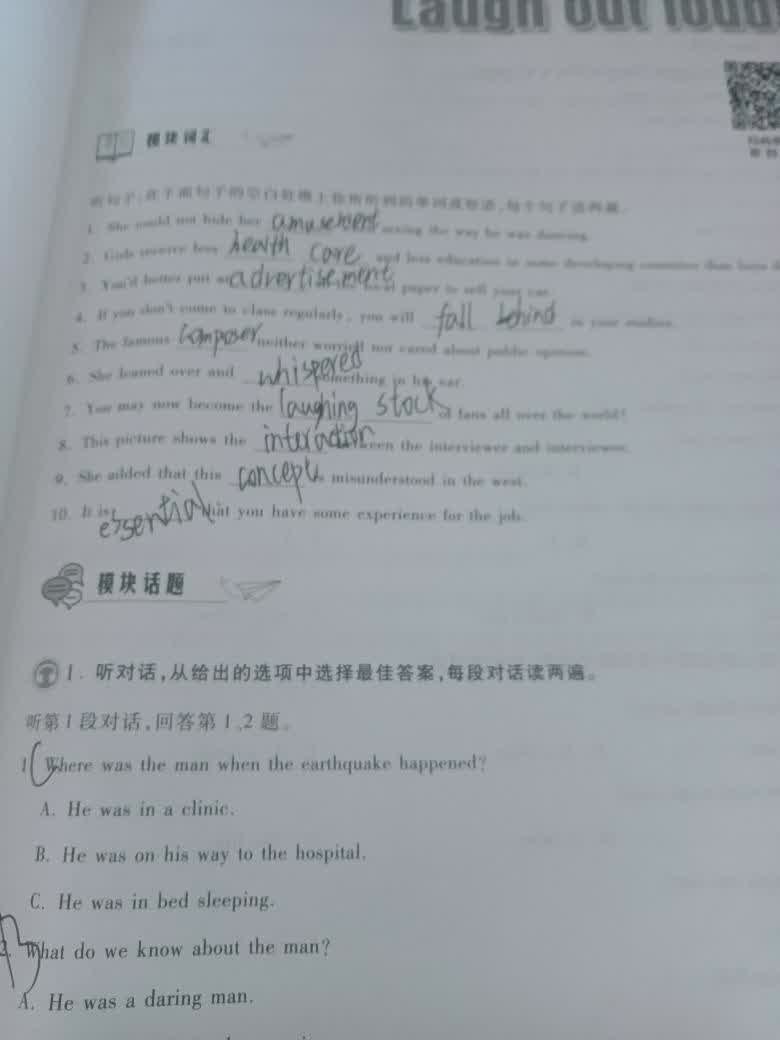 Laugh out loud
模块词汇
听句子,在下面句子的空白处填上你所听到的单词或短语,每个句子读两遍。
1. She could not hide her amusement seeing the way he was dancing.
2. Girls receive less health care and less education in some developing countries than
3. You'd better put advertisement paper to sell your car.
4. If you don't come to class regularly, you will fall behind in your studies.
5. The famous composer neither worried nor cared about public opinion.
6. She leaned over and whispered something in his ear.
7. You may now become the laughing stock of fans all over the world!
8. This picture shows the interaction between the interviewer and interviewee.
9. She added that this concept is misunderstood in the west.
10. It is essential that you have some experience for the job.
模块话题
1. 听对话,从给出的选项中选择最佳答案,每段对话读两遍。
听第1段对话,回答第1、2题。
1. Where was the man when the earthquake happened?
A. He was in a clinic.
B. He was on his way to the hospital.
C. He was in bed sleeping.
2. What do we know about the man?
A. He was a daring man.